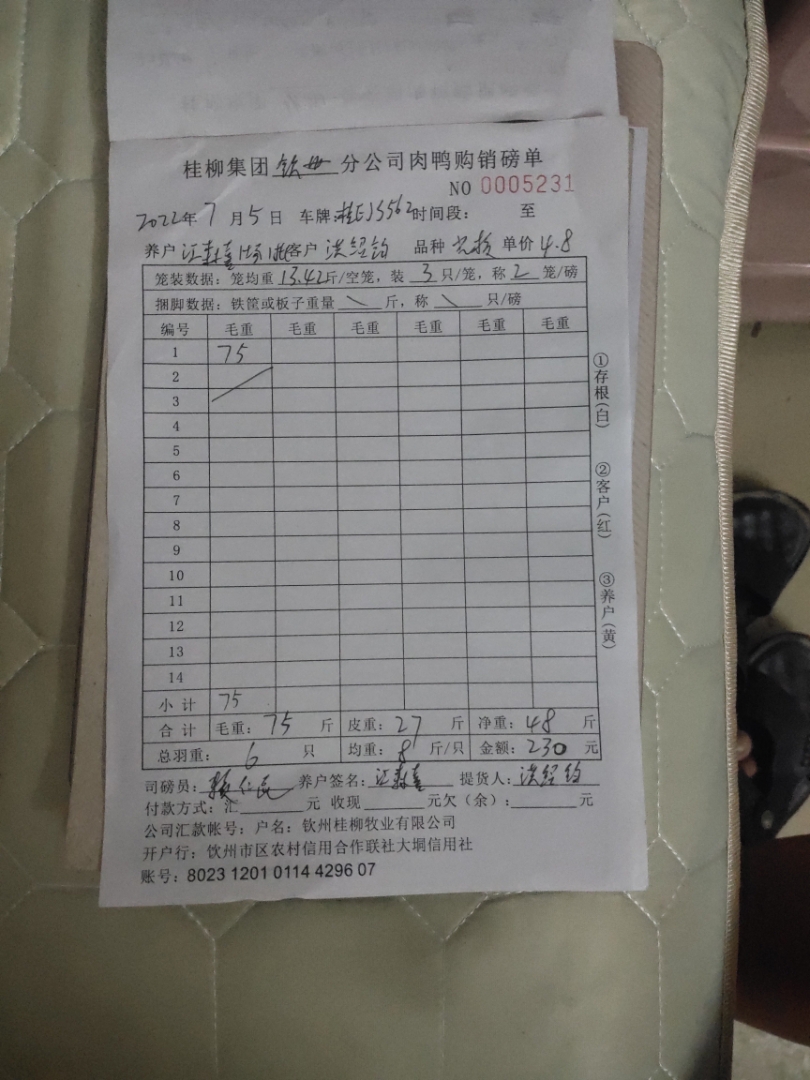 桂柳集团钦州分公司肉鸭购销磅单
NO 0005231
2022年7月5日 车牌桂EJ5562时间段： 至
养户 客户洪经钧 品种 单价4.8
笼装数据：笼均重13.42斤/空笼，装3只/笼，称2笼/磅
捆脚数据：铁筐或板子重量\斤，称\只/磅
编号 毛重 毛重 毛重 毛重 毛重 毛重
1 75
2
3
4
5
6
7
8
9
10
11
12
13
14
小计 75
合计 毛重：75斤 皮重：27斤 净重：48斤
总羽重：6只 均重：8斤/只 金额：230元
司磅员： 养户签名： 提货人：洪经钧
付款方式：汇 元 收现 元欠（余）： 元
公司汇款帐号：户名：钦州桂柳牧业有限公司
开户行：钦州市区农村信用合作联社大垌信用社
账号：8023 1201 0114 4296 07
①存根(白)
②客户(红)
③养户(黄)